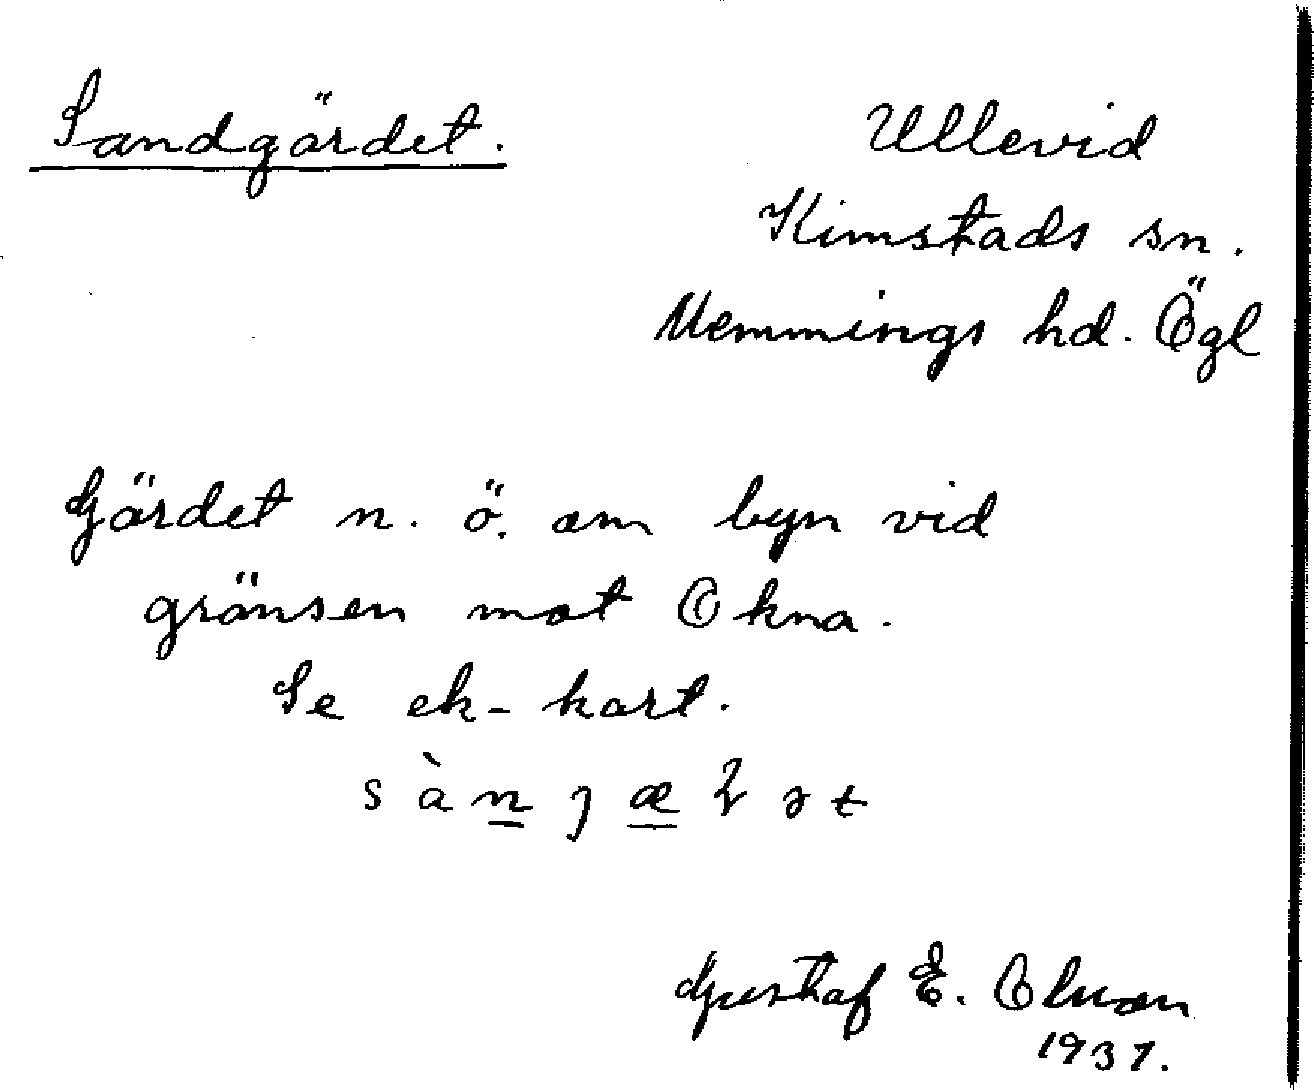 Sandgärdet.
Ullevid
Kimstads sn.
Memmings hd. Ögl
Gärdet n. ö. om byn vid
gränsen mot Okna.
Se ek-kart.
Gustaf E. Olson
1937.